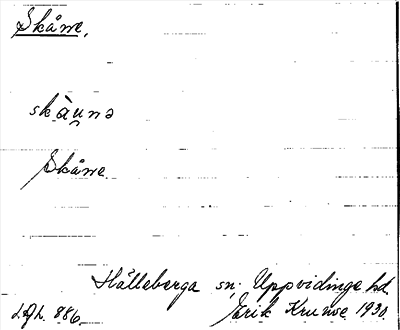 Skåne.
skàu̯nə
Skåne
Hälleberga sn; Uppvidinge hd.
886. Erik Kruuse 1930.